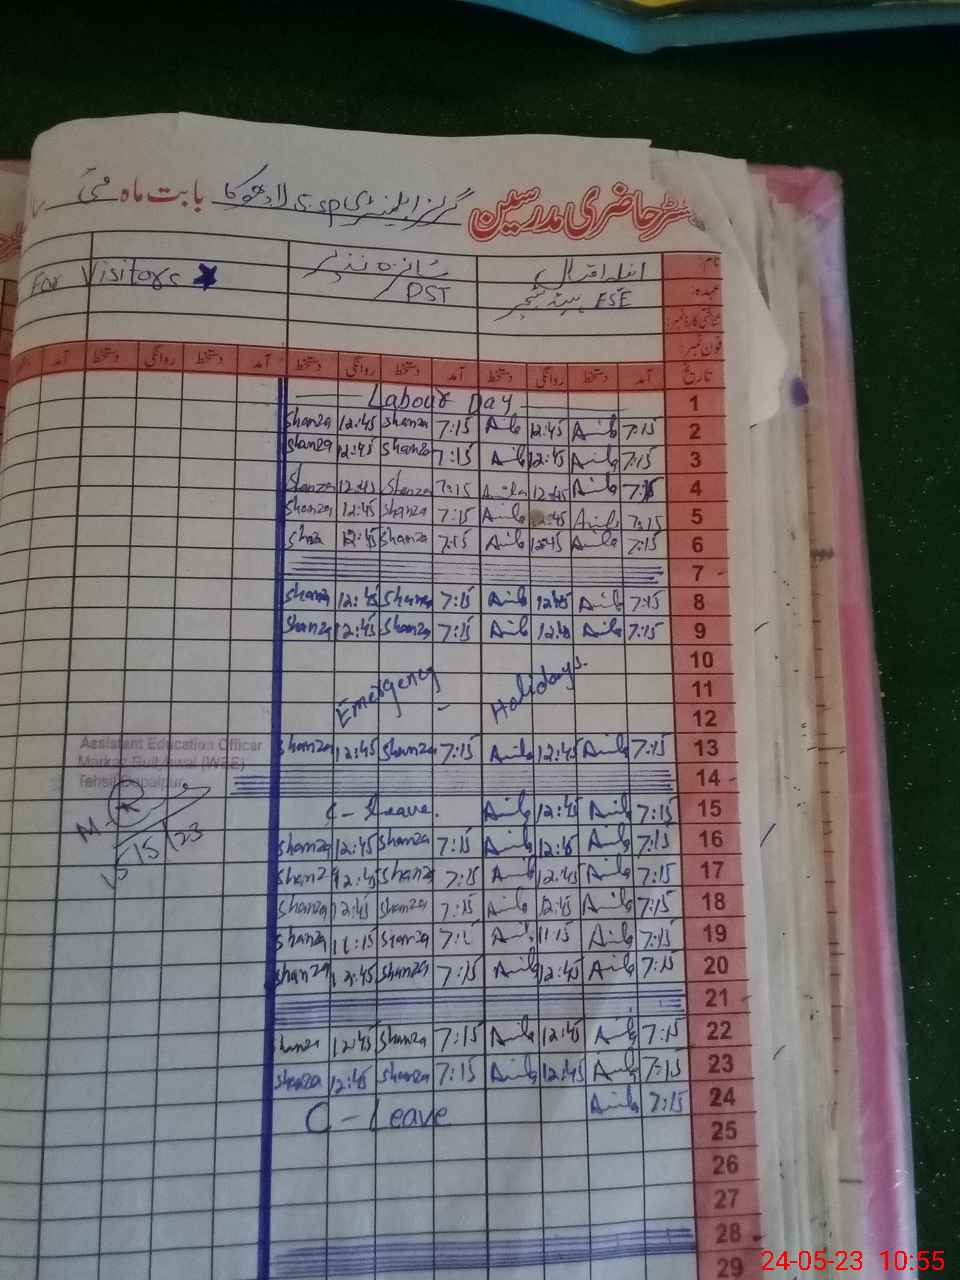 رجسٹر حاضری مدرسین گرلز ایلیمنٹری S.sp لادھوکا بابت ماہ مئی
نام انیلہ اقبال شانزہ نذیر For Visitors
عہدہ ESE ہیڈ ٹیچر PST
شناختی کارڈ نمبر:
فون نمبر:
تاریخ آمد دستخط روانگی دستخط آمد دستخط روانگی دستخط آمد دستخط روانگی دستخط آمد
Labour Day 1
Shanza 12:45 Shanza 7:15 Anila 12:45 Anila 7:15 2
Shanza 12:45 Shanza 7:15 Anila 12:45 Anila 7:15 3
Shanza 12:45 Shanza 7:15 Anila 12:45 Anila 7:15 4
Shanza 12:45 Shanza 7:15 Anila 12:45 Anila 7:15 5
Shaza 12:45 Shanza 7:15 Anila 12:45 Anila 7:15 6
7
Shanza 12:45 Shanza 7:15 Anila 12:45 Anila 7:15 8
Shanza 12:45 Shanza 7:15 Anila 12:45 Anila 7:15 9
10
Emergency - Holidays. 11
12
Shanza 12:45 Shanza 7:15 Anila 12:45 Anila 7:15 13
Assistant Education Officer
(WEE)
Tehsil Depalpur
14
C - Leave. Anila 12:45 Anila 7:15 15
15/5/23
Shanza 12:45 Shanza 7:15 Anila 12:45 Anila 7:15 16
Shanza 12:45 Shanza 7:15 Anila 12:45 Anila 7:15 17
Shanza 12:45 Shanza 7:15 Anila 12:45 Anila 7:15 18
Shanza 11:15 Shanza 7:15 Anila 11:15 Anila 7:15 19
Shanza 12:45 Shanza 7:15 Anila 12:45 Anila 7:15 20
21
Shanza 12:45 Shanza 7:15 Anila 12:45 Anila 7:15 22
Shanza 12:45 Shanza 7:15 Anila 12:45 Anila 7:15 23
C - Leave Anila 7:15 24
25
26
27
28
29
24-05-23 10:55